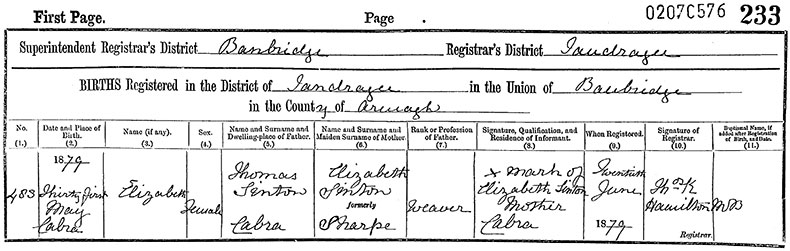 First Page. Page . 0207C576 233
Superintendent Registrar's District Banbridge Registrar's District Tandragee
BIRTHS Registered in the District of Tandragee in the Union of Banbridge
in the County of Armagh
No. (1.) Date and Place of Birth. (2.) Name (if any). (3.) Sex. (4.) Name and Surname and Dwelling-place of Father. (5.) Name and Surname and Maiden Surname of Mother. (6.) Rank or Profession of Father. (7.) Signature, Qualification, and Residence of Informant. (8.) When Registered. (9.) Signature of Registrar. (10.) Baptismal Name, if added after Registration of Birth, and Date. (11.)
1879 Thomas Elizabeth x mark of Twentieth
483 Thirty first Elizabeth Sinton Sinton Elizabeth Sinton June Thos K
May Female formerly Weaver Mother Hamilton MB
Cabra Cabra Sharpe Cabra 1879 Registrar.